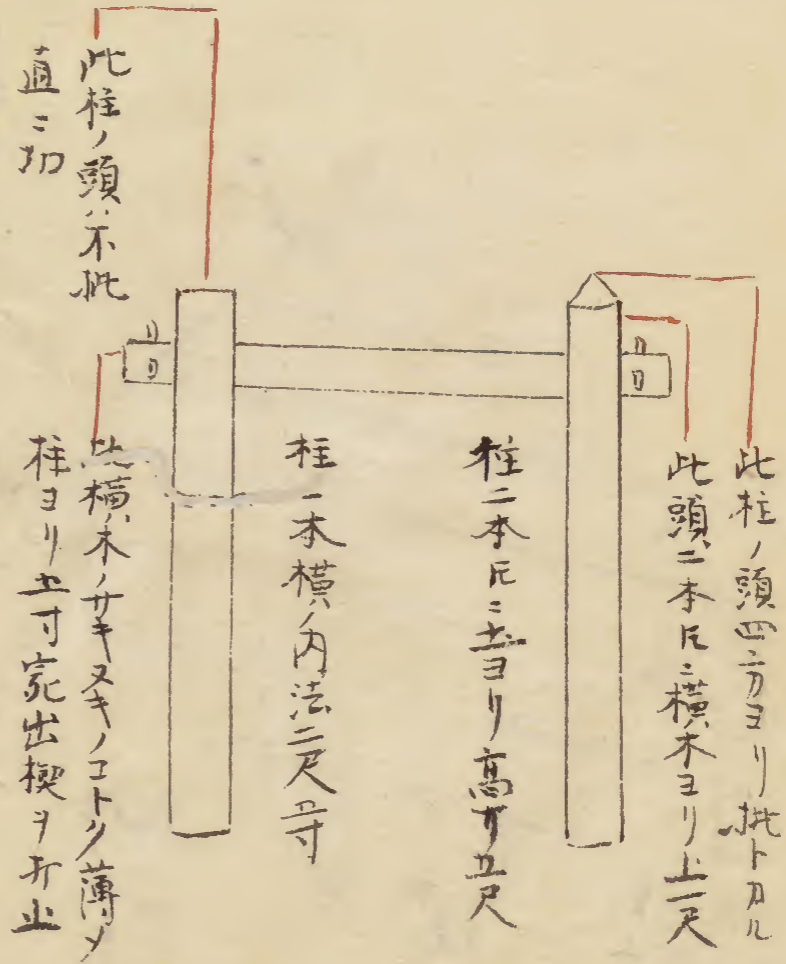 此柱ノ頭四方ヨリ批トカル
此頭二本圧ニ横木ヨリ上一尺
柱二本圧ニ土ヨリ高サ五尺
柱一本横ノ内法二尺五寸
此柱ノ頭ハ不批
直ニ切
此横木ノサキヌキノコトク薄メ
柱ヨリ五寸宛出楔ヲ打止